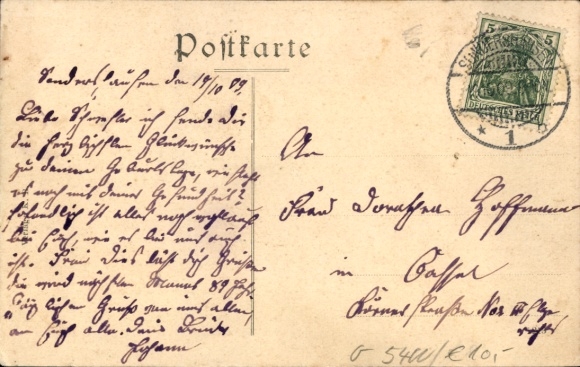 Postkarte
Sondershausen den 19/10 09.
Liebe Schwester ich sende Dir
die herzlichsten Glückwünsche
zu deinem Geburtstage, wie steht
es noch mit deiner Gesundheit?
hoffentlich ist alles noch wohlauf
bei Euch, wie es bei uns auch
ist. Frau läßt dich Grüßen
die wird nächsten Monat 89 Jahr.
Herzlichen Gruß von uns allen,
an Euch alle. Dein Bruder
Johann
5 5
SONDERSHAUSEN
DEUTSCHES REICH
* 1
An
Frau Dorothea Hoffmann
in Cassel
Körner Straße No 2 III Etge
rechts
5400/€10,-